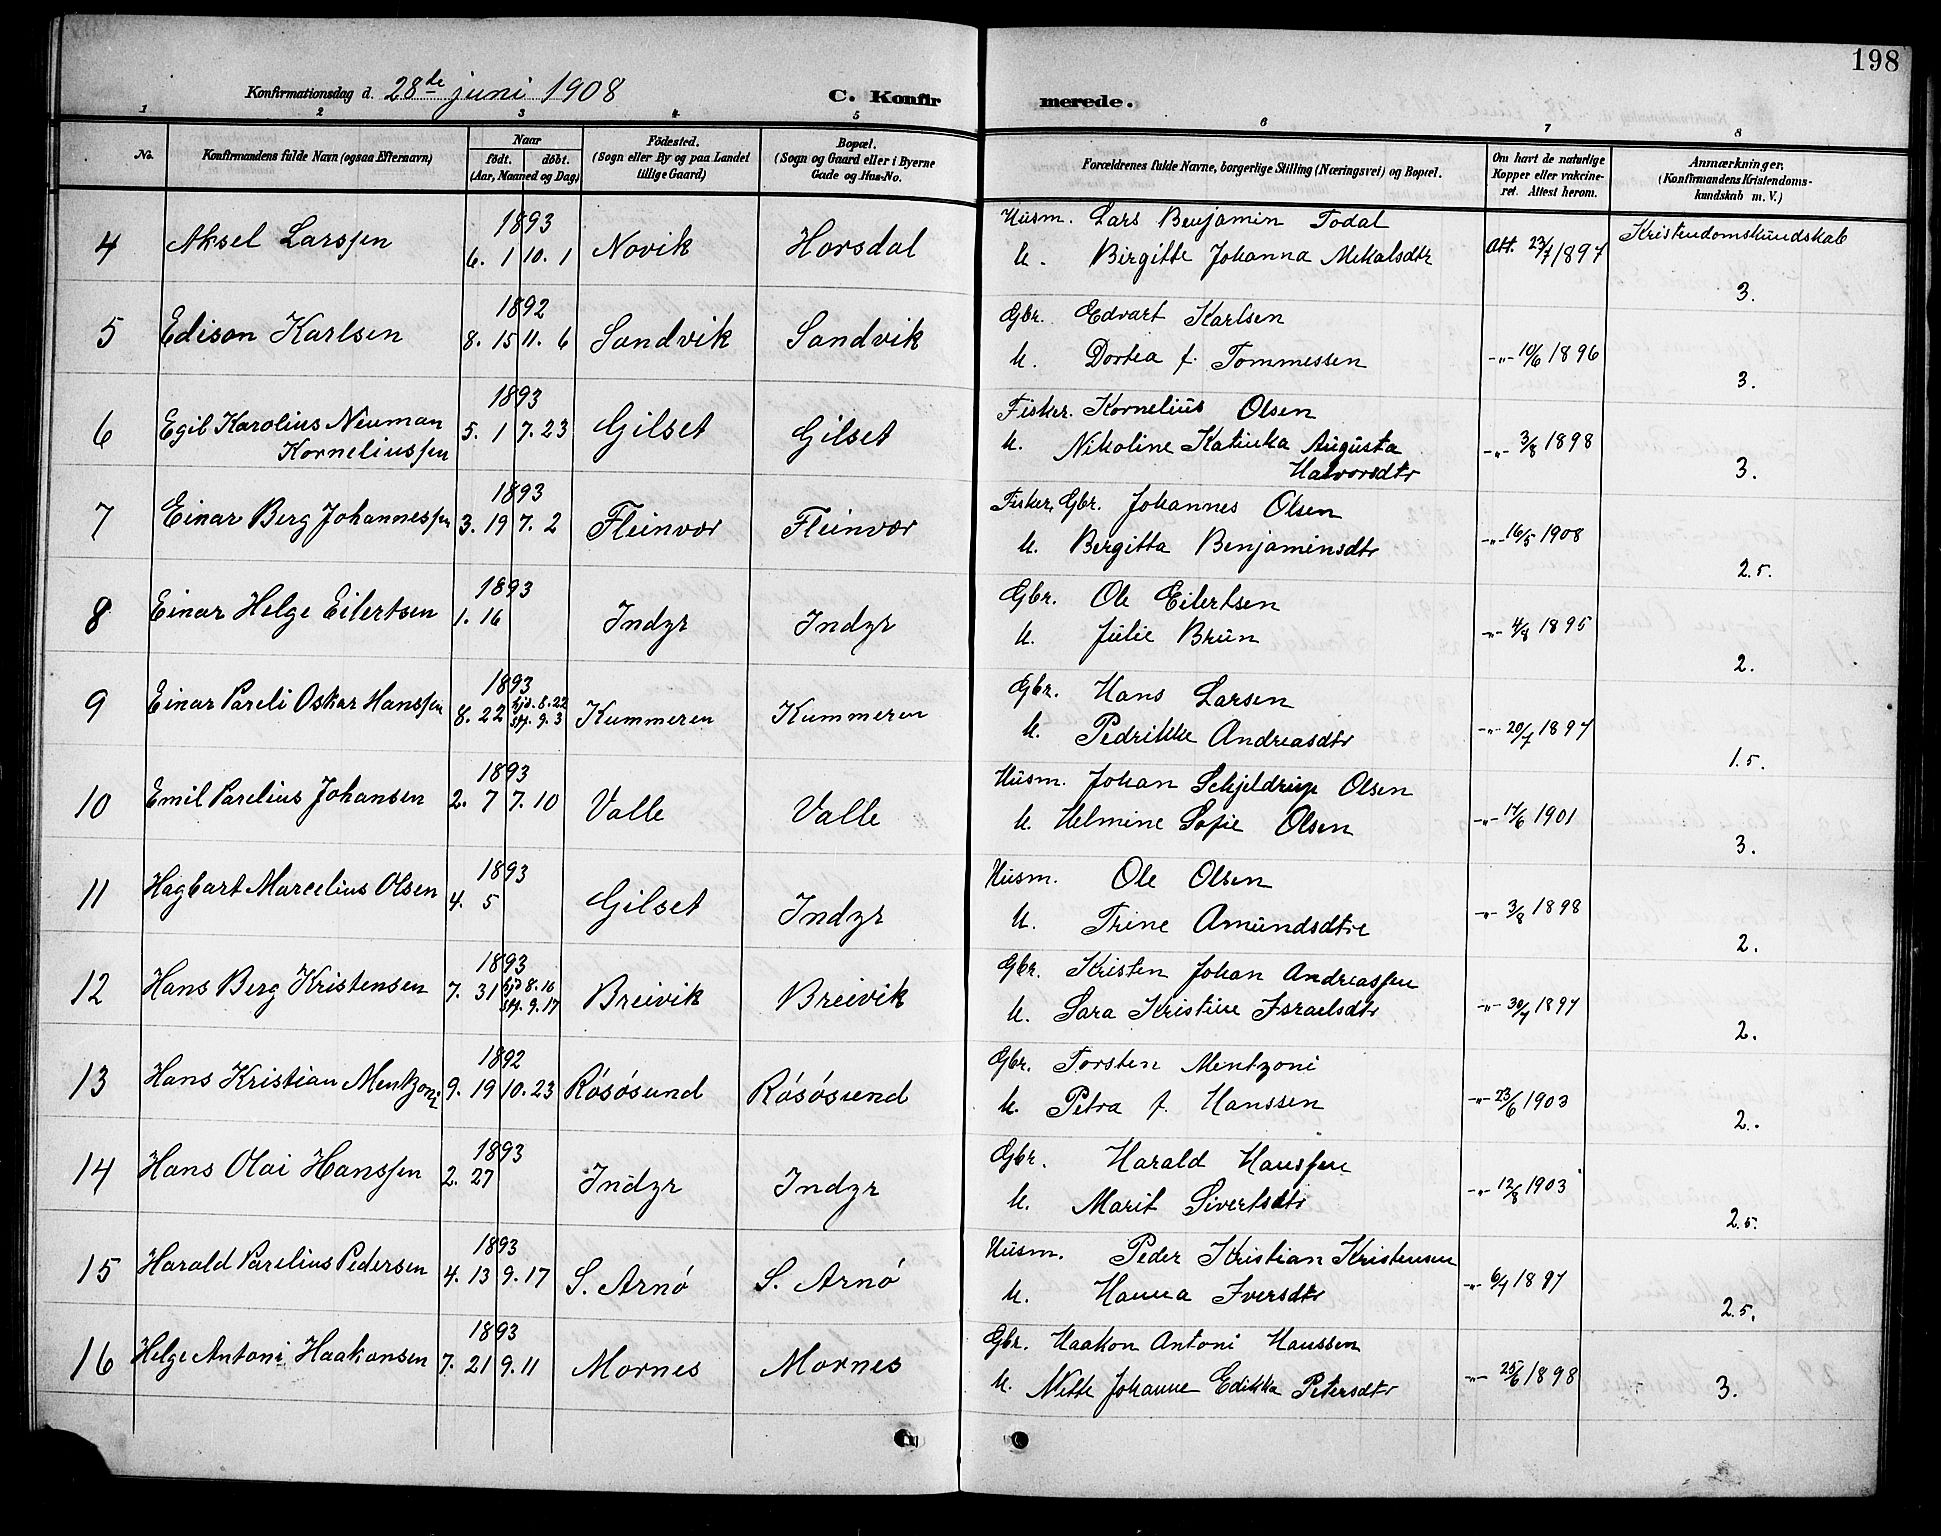 198
Konfirmationsdag d. 28de juni 1908 C. Konfirmerede.
1 2 3 4 5 6 7 8
No.
Konfirmandens fulde Navn (ogsaa Efternavn)
Naar
födt. döbt.
(Aar, Maaned og Dag)
Födested.
(Sogn eller By og paa Landet
tillige Gaard)
Bopæl.
(Sogn og Gaard eller i Byerne
Gade og Hus-No.
Forældrenes fulde Navne, borgerlige Stilling (Næringsvei) og Bopæl.
Om havt de naturlige
Kopper eller vakcine-
ret. Attest herom.
Anmærkninger,
(Konfirmandens Kristendoms-
kundskab m. V.)
4 Aksel Larssen 1893 6. 1 10. 1 Novik Horsdal Husm. Lars Benjamin Todal
k. Birgitte Johanna Mikalsdtr Att. 23/7 1897 Kristendomskundskab 3.
5 Edison Karlsen 1892 8. 15 11. 6 Sandvik Sandvik Gbr. Edvart Karlsen
k. Dortea f. Tommessen -"- 10/6 1896 3.
6 Egil Karolius Neuman
Korneliussen 1893 5. 1 7. 23 Gilset Gilset Fisker. Kornelius Olsen
k. Nikoline Katinka Augusta
Halvorsdtr -"- 3/8 1898 3.
7 Einar Berg Johannessen 1893 3. 19 7. 2 Fleinvær Fleinvær Fisker, Gbr. Johannes Olsen
k. Bergitta Benjaminsdtr -"- 16/5 1908 2.5.
8 Einar Helge Eilertsen 1893 1. 16 Indyr Indyr Gbr. Ole Eilertsen
k. Julie Brun -"- 4/8 1895 2.
9 Einar Pareli Oskar Hanssen 1893 8. 22 hjd. 8. 22
stf. 9. 3 Kummeren Kummeren Gbr. Hans Larsen
k. Pedrikke Andreasdtr -"- 20/7 1897 1.5.
10 Emil Parelius Johansen 1893 2. 7 7. 10 Valle Valle Husm. Johan Schjeldrup Olsen
k. Helmine Sofie Olsen -"- 17/6 1901 3.
11 Hagbart Marcelius Olsen 1893 4. 5 Gilset Indyr Husm. Ole Olsen
k. Trine Amundsdtr -"- 3/8 1898 2.
12 Hans Berg Kristensen 1893 7. 31 hjd 8. 16
stf. 9. 17 Breivik Breivik Gbr. Kristen Johan Andreassen
k. Sara Kristine Israelsdtr -"- 30/7 1897 2.
13 Hans Kristian Mentzoni 1892 9. 19 10. 23 Røsøsund Røsøsund Gbr. Torsten Mentzoni
k. Petra f. Hanssen -"- 23/6 1903 2.
14 Hans Olai Hanssen 1893 2. 27 Indyr Indyr Gbr. Harald Hanssen
k. Marit Sivertsdtr -"- 12/8 1903 2.5.
15 Harald Parelius Pedersen 1893 4. 13 9. 17 S. Arnø S. Arnø Husm. Peder Kristian Kristensen
k. Hanna Iversdtr -"- 6/7 1897 2.5.
16 Helge Antoni Haakonsen 1893 7. 21 9. 11 Mornes Mornes Gbr. Haakon Antoni Hanssen
k. Nette Johanne Edikka Petersdtr -"- 25/6 1898 3.